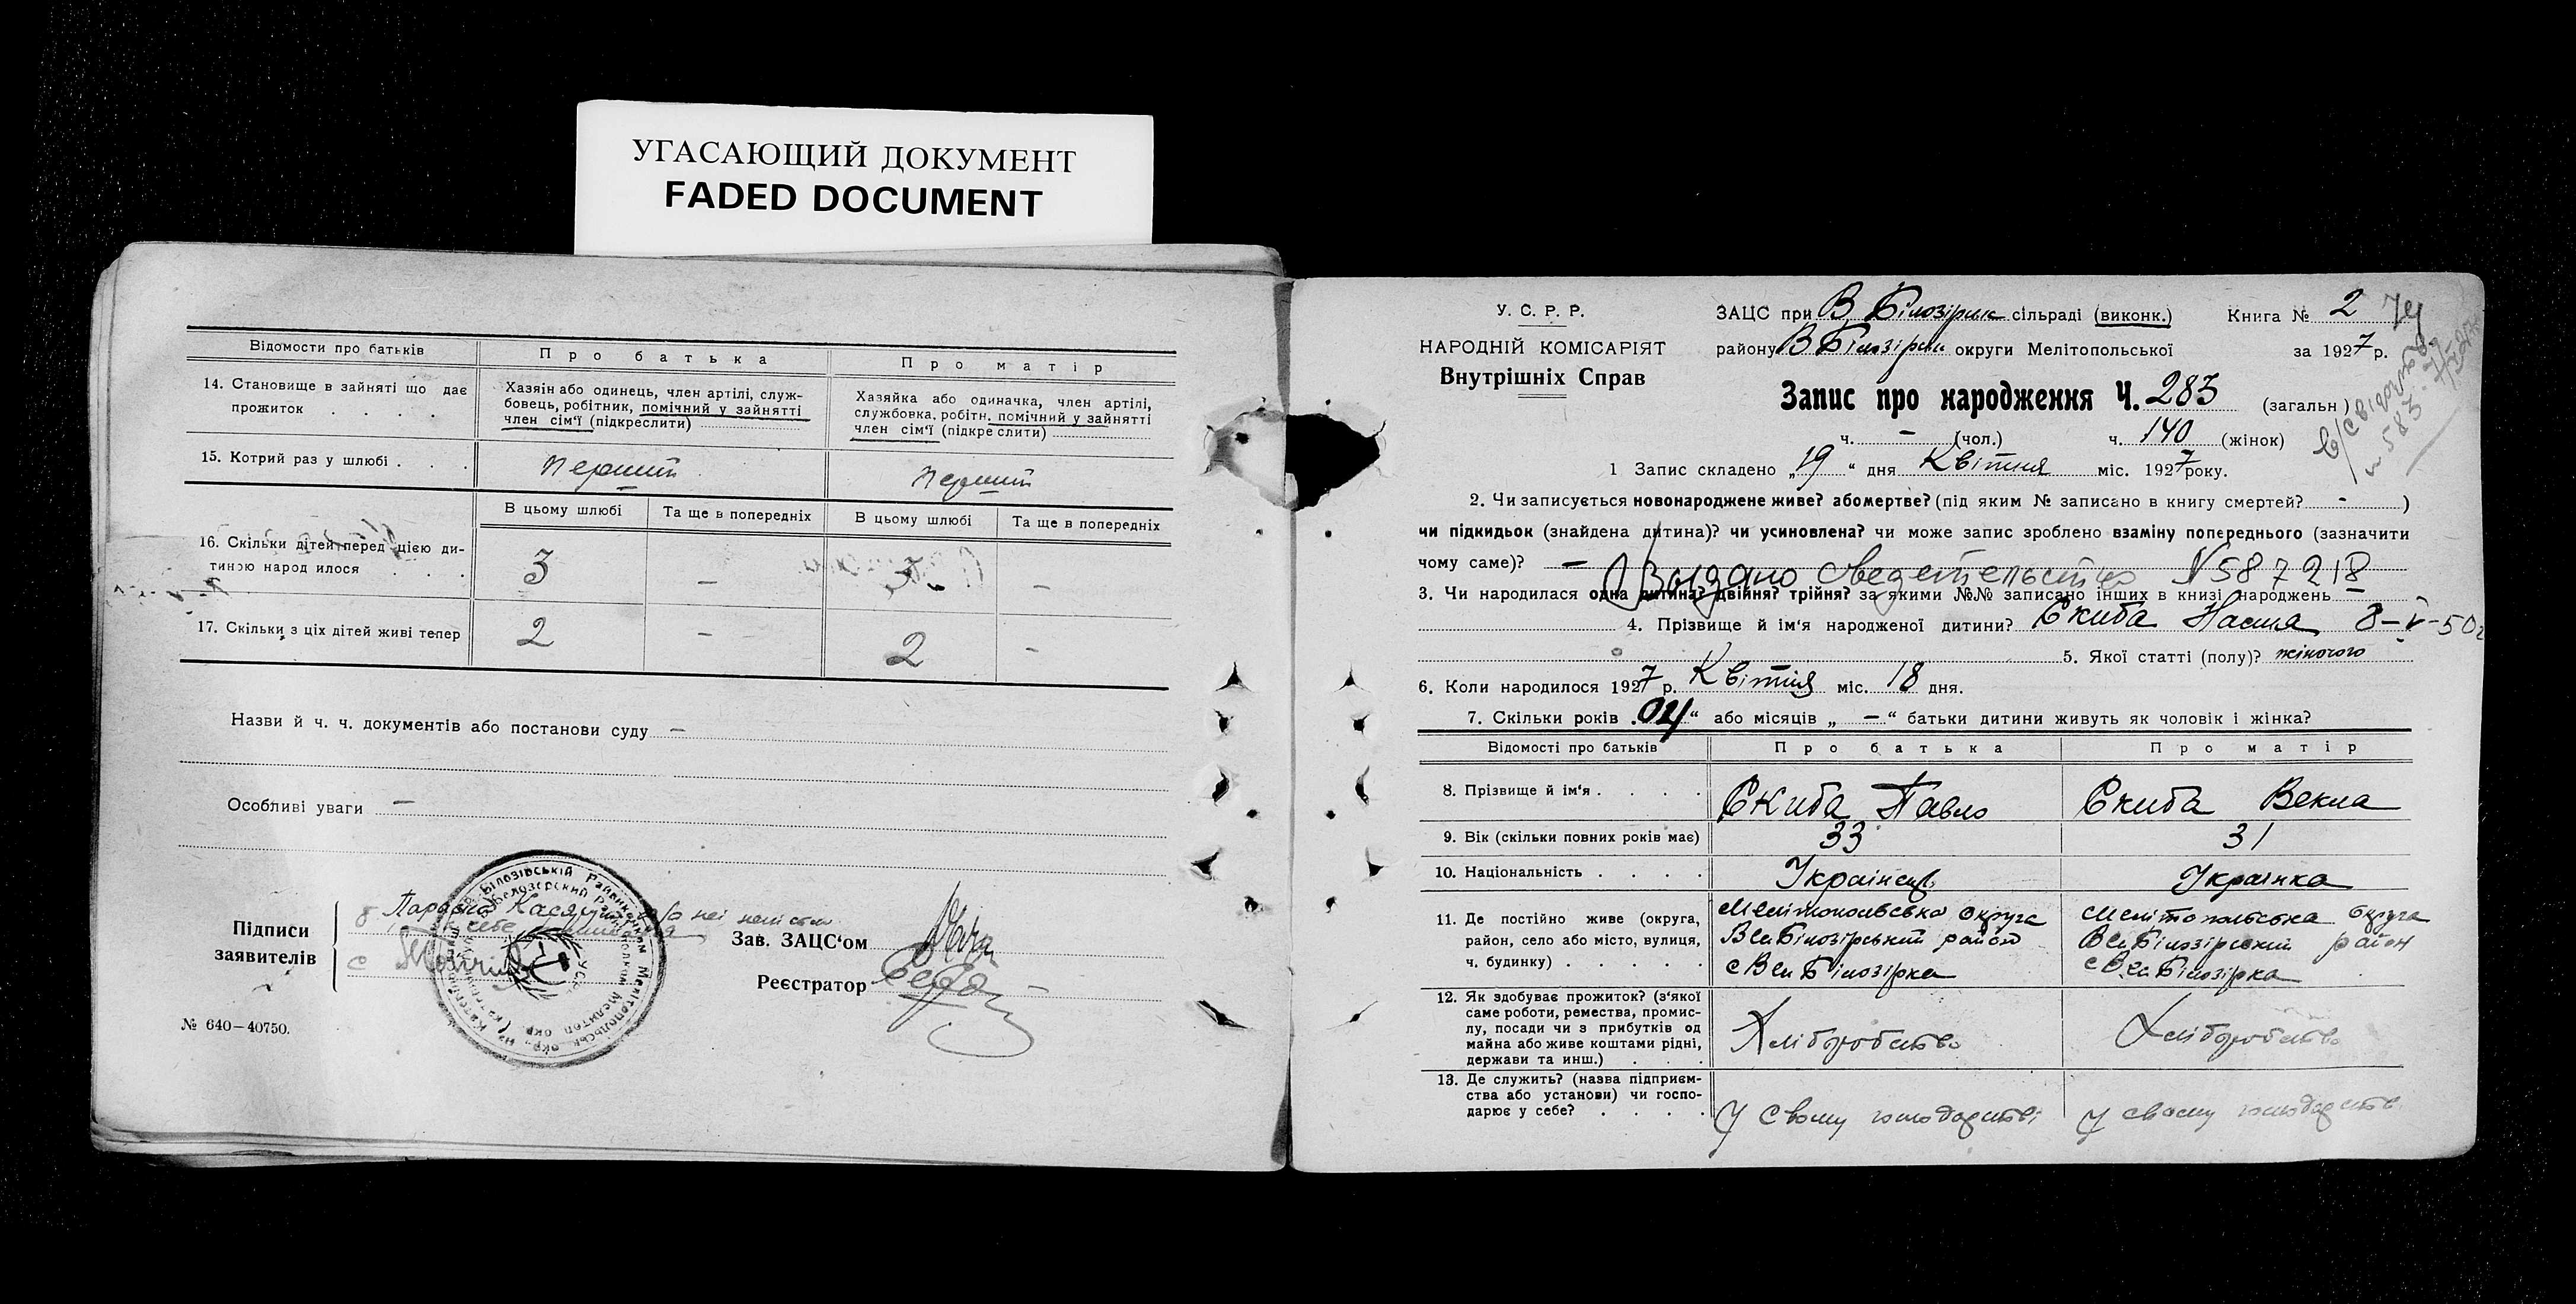 УГАСАЮЩИЙ ДОКУМЕНТ
FADED DOCUMENT
Відомости про батьків
Про батька
Про матір
14. Становище в зайняті що дає
прожиток . . . .
Хазяін або одинець, член артілі, служ-
бовець, робітник, помічний у зайнятті
член сім'ї (підкреслити)
Хазяйка або одиначка, член артілі,
службовка, робітн. помічний у зайнятті
член сім'ї (підкреслити)
15. Котрий раз у шлюбі . . .
перший
перший
В цьому шлюбі
Та ще в попередніх
В цьому шлюбі
Та ще в попередніх
16. Скільки дітей перед цією ди-
тиною народилося . . .
3 - 3 -
17. Скільки з ціх дітей живі тепер
2 - 2 -
Назви й ч. ч. документів або постанови суду -
Особливі уваги -
Підписи
заявителів
Зав. ЗАЦС'ом
Реєстратор
№ 640—40750.
У. С. Р. Р.
НАРОДНІЙ КОМІСАРІЯТ
Внутрішніх Справ
ЗАЦС при В Білозірськ сільраді (виконк.)
Книга № 2
району В Білозірськ округи Мелітопольської
за 1927 р.
Запис про народження Ч. 283 (загальн)
ч. - (чол.) ч. 140 (жінок)
1 Запис складено „19“ дня Квітня міс. 1927 року.
2. Чи записується новонароджене живе? або мертве? (під яким № записано в книгу смертей? - )
чи підкидьок (знайдена дитина)? чи усиновлена? чи може запис зроблено взаміну попереднього (зазначити
чому саме)? -
Выдано сведетельство N 587218
3. Чи народилася одна дитина? двійня? трійня? за якими №№ записано інших в книзі народжень -
4. Прізвище й ім'я народженої дитини? Скиба Настя 8-V-50г
5. Якої статті (полу)? жіночого
6. Коли народилося 1927 р. Квітня міс. 18 дня.
7. Скільки років „ “ або місяців „ - “ батьки дитини живуть як чоловік і жінка?
Відомості про батьків
Про батька
Про матір
8. Прізвище й ім'я . . . .
Скиба Павло
Скиба Векла
9. Вік (скільки повних років має)
33
31
10. Національність . . . .
Українець
Українка
11. Де постійно живе (округа,
район, село або місто, вулиця,
ч. будинку) . . . . .
Мелітопольська округа
Вел Білозірський район
с Вел Білозірка
Мелітопольська округа
Вел Білозірський район
с Вел Білозірка
12. Як здобуває прожиток? (з'якої
саме роботи, ремества, промис-
лу, посади чи з прибутків од
майна або живе коштами рідні,
держави та инш.) . . .
Хліборобство
Хліборобство
13. Де служить? (назва підприєм-
ства або установи) чи госпо-
дарює у себе? . . . .
У свому господарстві
У свому господарстві